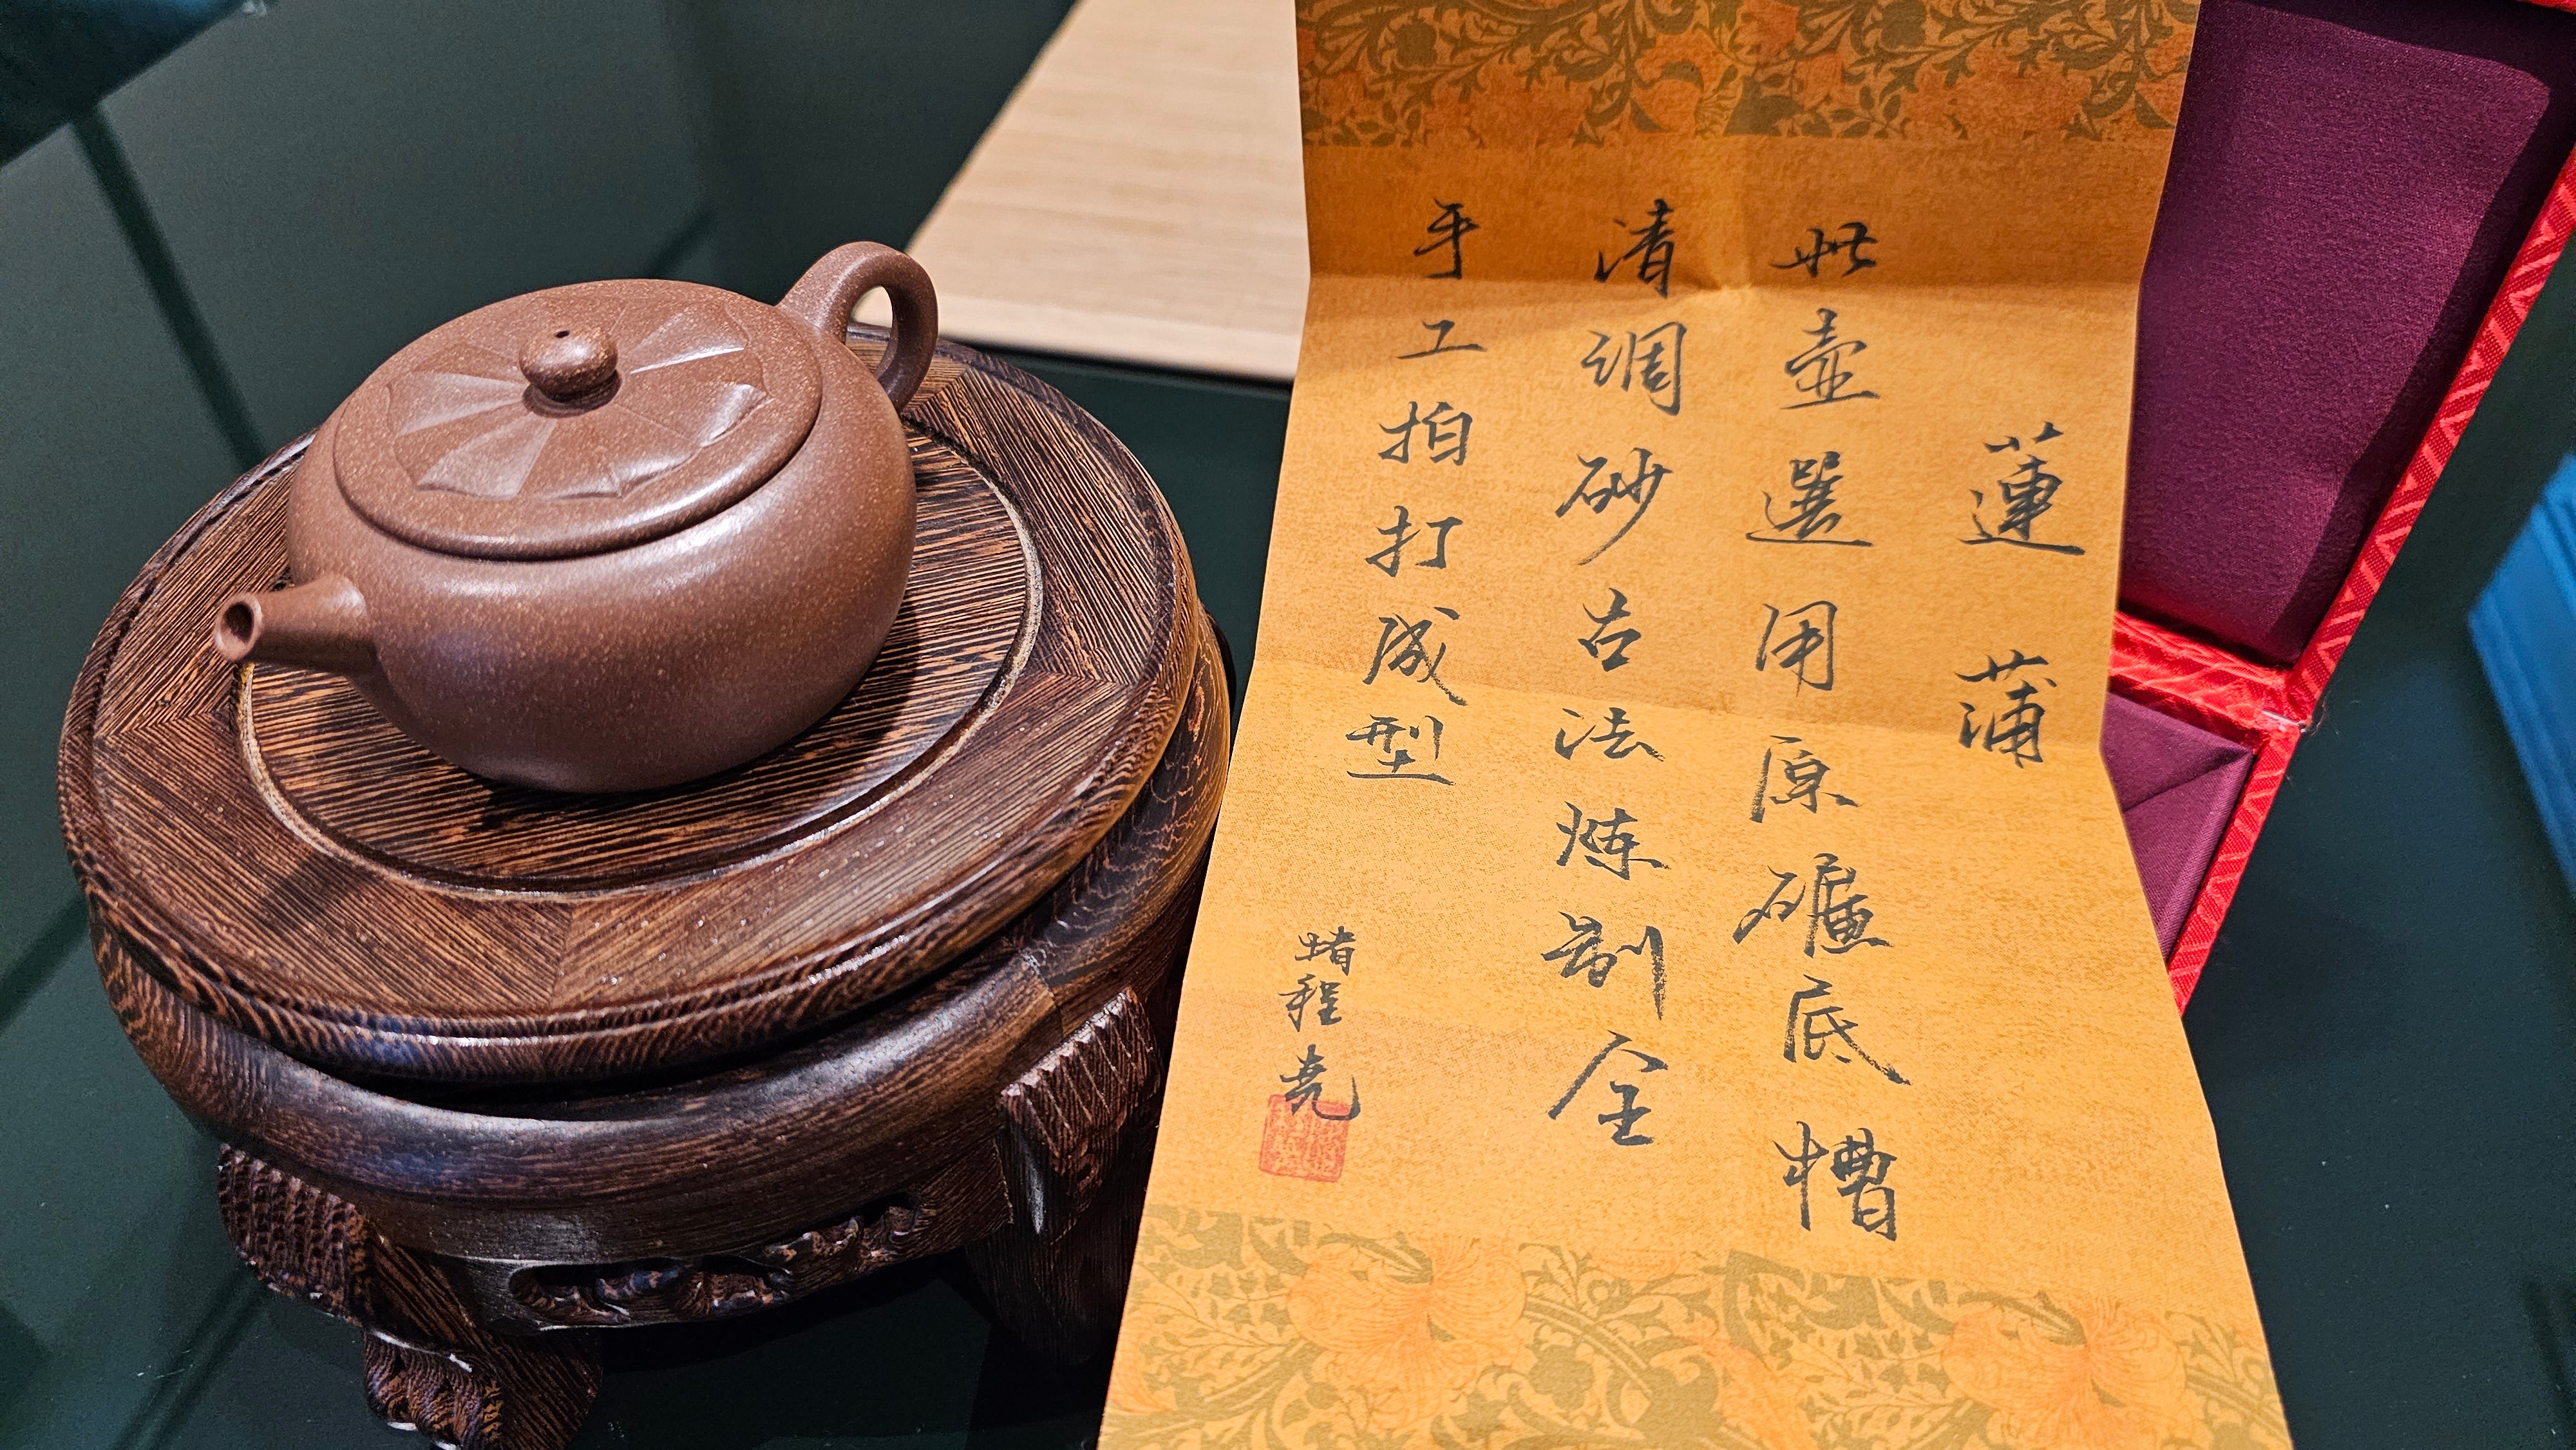 蓮蒲
此壶選用原礦底槽
清调砂古法炼制全
手工拍打成型
堵程尧